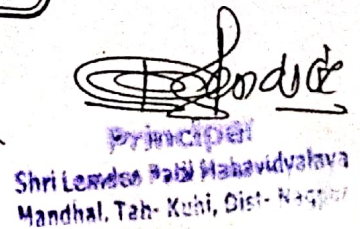 Principal
Shri Lemdeo Patil Mahavidyalaya
Mandhal, Tah- Kuhi, Dist- Nagpur